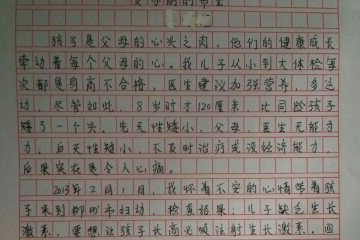 孩子是父母的心头之肉，他们的健康成长
牵动着每个父母的心。我儿子从小到大体检案
次都是身高不合格，医生建议加强营养，多运
动，尽管如此，8岁时才120厘米，比同龄孩子
矮了一个头。先天性矮小，父母、医生无能为
力，后天性矮小，不及时治疗或没经济能力，
后果实在是令人心痛。
2013年2月1日，我怀着不安的心情带着孩
子来到柳州市妇幼，检查结果：儿子缺乏生长
激素，要想让孩子长高必须注射生长激素。回